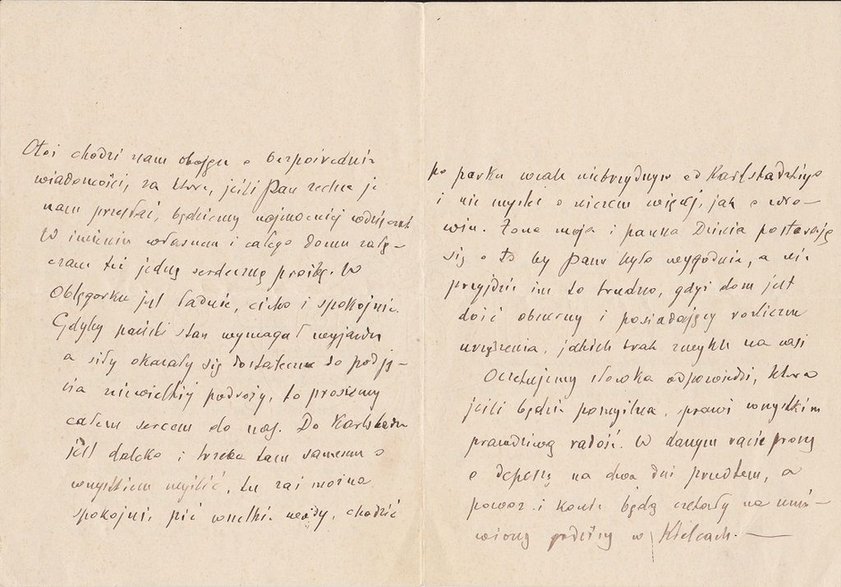 Otóż chodzi nam obojgu o bezpośrednie
wiadomości, za które, jeśli Pan zechce je
nam przesłać, będziemy najmocniej wdzięczni
W imieniu własnem i całego domu załą-
czam też jedną serdeczną prośbę. W
Oblęgorku jest ładnie, cicho i spokojnie.
Gdyby pański stan wymagał wyjazdu
a siły okazały się dostateczne do podję-
cia niewielkiej podróży, to prosimy
całem sercem do nas. Do Karlsbadu
jest daleko i trzeba tam samemu o
wszystkiem myśleć, tu zaś można
spokojnie pić wszelkie wody, chodzić
po parku wcale niebrzydszym od Karlsbadzkiego
i nie myśleć o niczem więcej, jak o zdro-
wiu. Żona moja i panna Dzinia postarają
się o to by Panu było wygodnie, a nie
przyjdzie im to trudno, gdyż dom jest
dość obszerny i posiadający rozliczne
urządzenia, jakich brak zwykle na wsi
Oczekujemy słówka odpowiedzi, która
jeśli będzie pomyślna, sprawi wszystkim
prawdziwą radość. W danym razie proszę
o depeszę na dwa dni przedtem, a
powóz i konie będą czekały na umó-
wioną godzinę w Kielcach. —